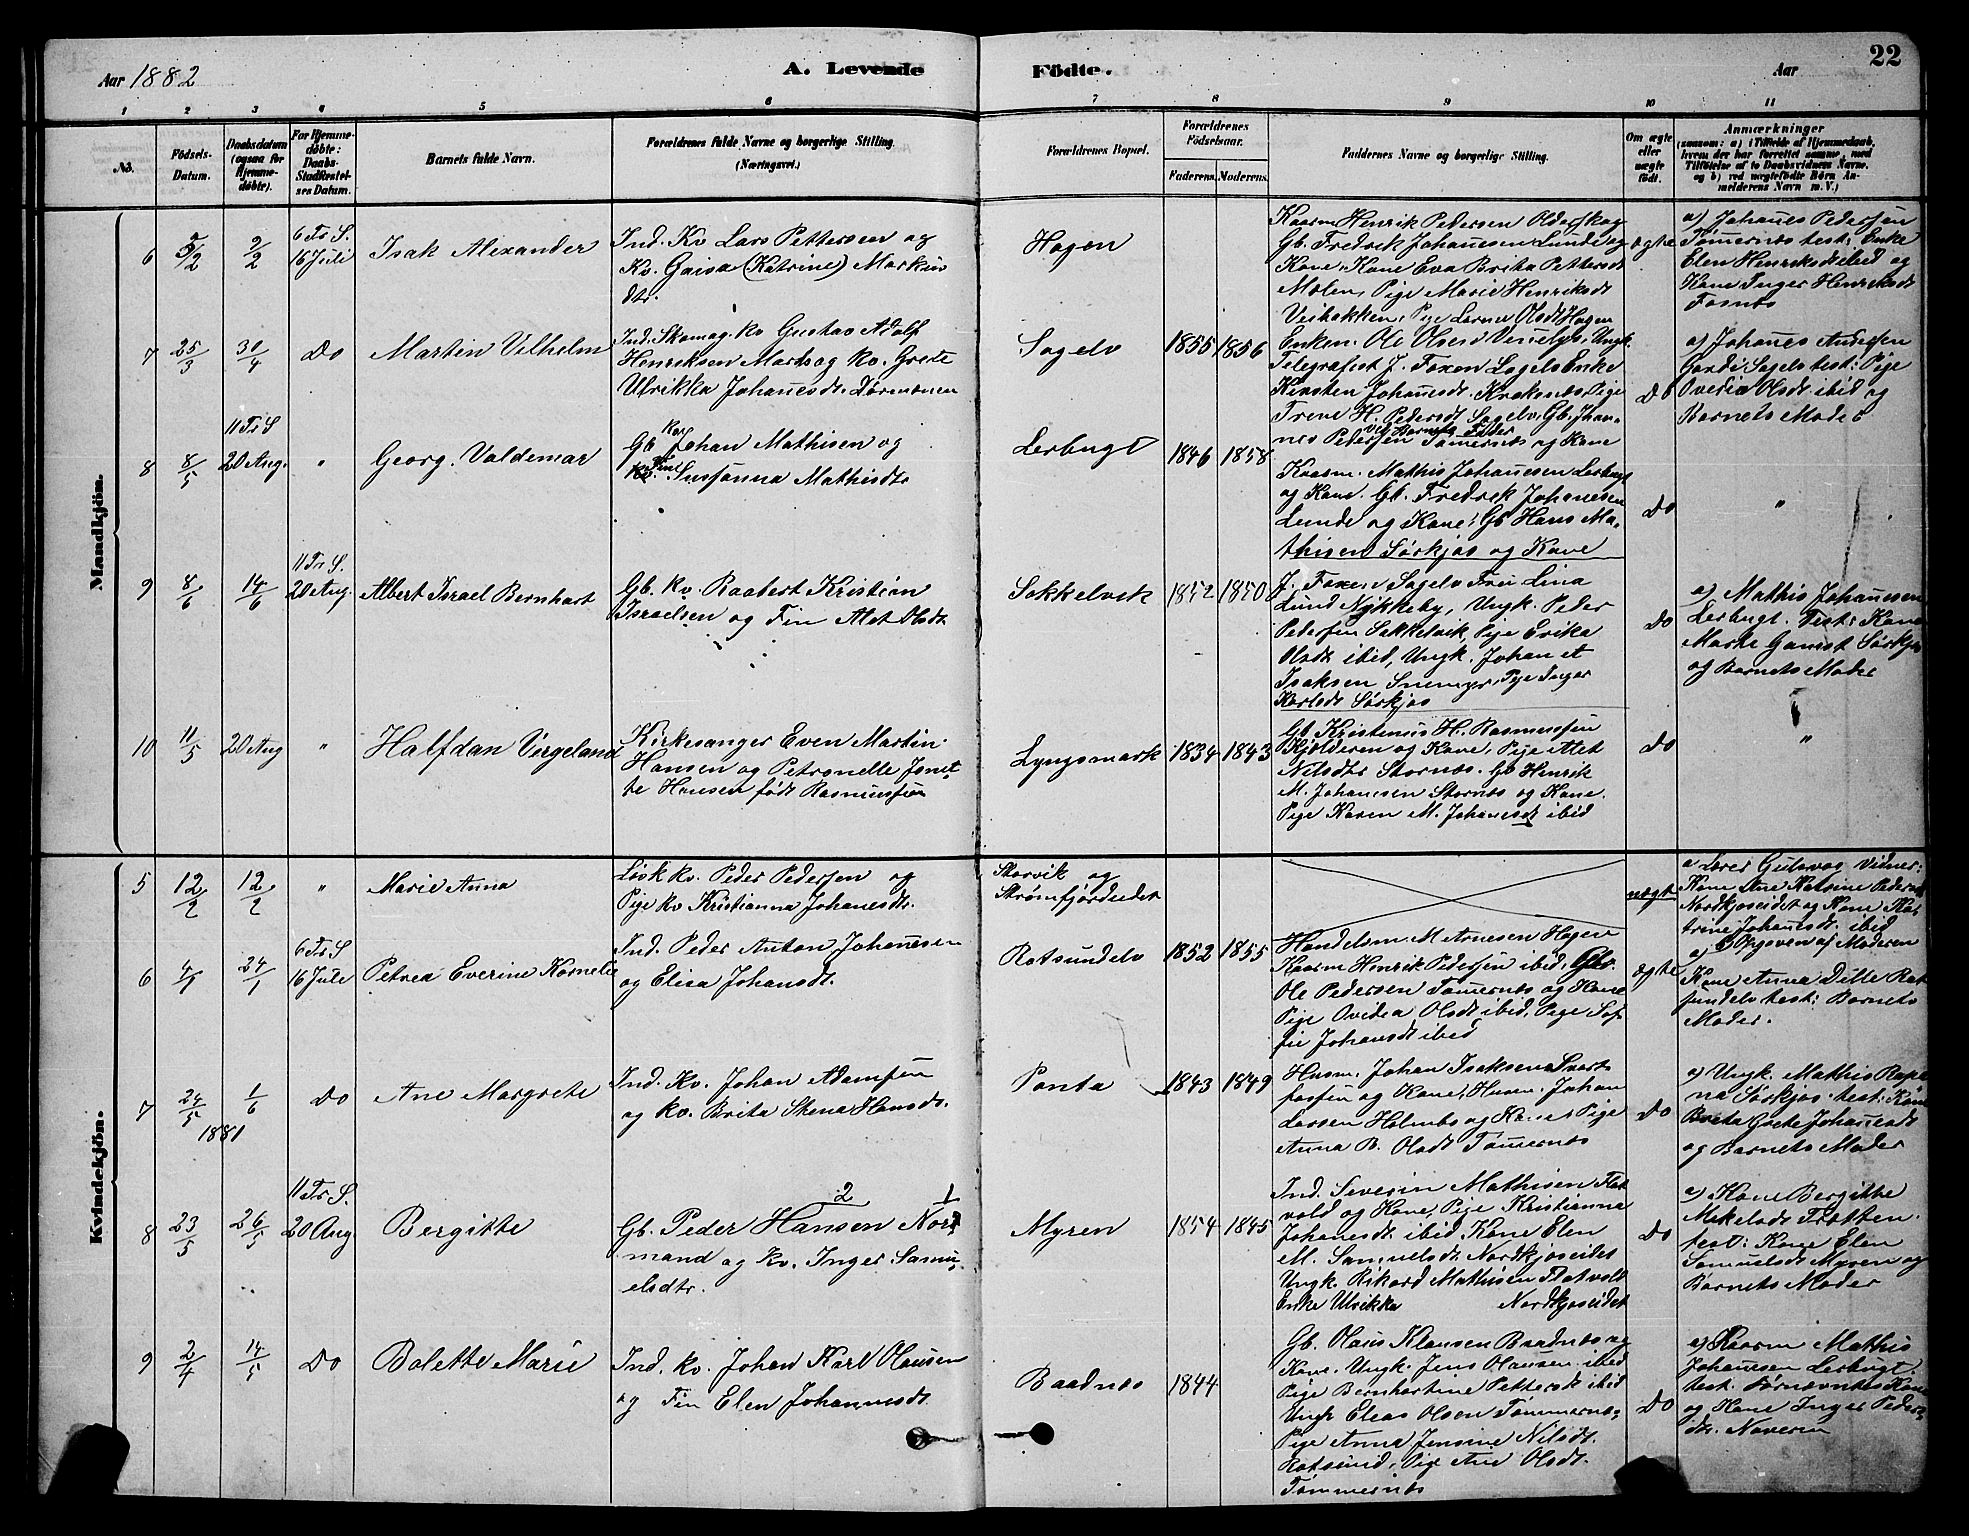 Aar 1882
A. Levende
Födte.
Aar
22
1
2
3
4
5
6
7
8
9
10
11
No.
Födsels-
Datum.
Daabsdatum
(ogsaa for
Hjemme-
döbte).
For Hjemme-
döbte:
Daabs-
Stadfæstel-
ses Datum.
Barnets fulde Navn.
Forældrenes fulde Navne og borgerlige Stilling.
(Næringsvei.)
Forældrenes Bopæl.
Forældrenes
Födselsaar.
Faderens.
Moderens.
Faddernes Navne og borgerlige Stilling.
Om ægte
eller
uægte
födt.
Anmærkninger
(saasom: a) i Tilfælde af Hjemmedaab,
hvem der har forrettet samme, med
Tilföielse af to Daabsvidners Navne,
og b) ved uægtefödte Börn An-
melderens Navn m. V.)
Mandkjön.
6
5/2
9/2
6 Tr. S.
16 Juli
Isak Alexander
Ind. Kv Lars Pettersen og
Kv. Gaisa (Katrine) Markus
dtr.
Hagen
Kaarm Henrik Pedersen Olderskog
Gb. Fredrik Johannesen Lunde og
Kone, Kone Eva Brita Pettersdt
Molen, Pige Marie Henriksdt
ægte
a) Johanes Pedersen
Tømernes test: Enke
Elen Henriksdt ibid og
Kone Inger Henriksdt
7
25/3
30/4
Do
Martin Vilhelm
Ind. Skomag. kv Gustav Adolf
Henriksen Marts og kv. Grete
Ulrikka Johanesdt. Dørmænen
Sagelv
1855
1856
Enken. Ole Olsen Ungk.
Telegrafist J. Foxen Sagelv Enke
Kirsten Johanesdt. Kraknes, Pige
Trene H. Pedersdt Sagelv, Gb. Johan-
nes Pedersen Tømernes og Kone
Do
a) Johanes Andersen
Sagelv test: Pige
Ovedia Olsdt ibid og
Barnets Moder
8
8/5
11 Tr S
20 Aug.
"
Georg. Valdemar
Gb Kv Johan Mathisen og
Fin Susanna Mathisdtr
Lerbugt
1846
1858
Kaarm. Mathis Johanesen Lerbugt
og Kone. Gb. Fredrik Johanesen
Lunde og Kone, Gb Hans Ma-
thisen Sørkjos og Kone
Do
"
9
8/6
14/6
11 Tr S.
20 Aug.
Albert Israel Bernhart
Gb. kv. Raabert Kristian
Israelsen og Fin Alet Olsdt.
Sakkelvik
1852
1850
J. Foxen Sagelv Fru Lina
Lund Nykkeby, Ungk. Peder
Pedersen Sakkelvik, Pige Erika
Olsdt ibid, Ungk. Johan et
Isaksen Snemyr, Pige Inger
Karlsdt Sørkjos
Do
a) Mathis Johanesen
Lerbugt. Test: Kone
Marhe Gamst Sørkjos
og Barnets Moder
10
11/5
20 Aug
"
Halfdan Vergeland
Kirkesanger Even Martin
Hansen og Petronelle Jonet-
te Hansen født Rasmussen
Lyngsmark
1834
1843
Gb. Kristenus H. Rasmussen
Kjolderen og Kone, Pige Alet
Nilsdtr Stornes. Gb Henrik
M. Johanesen Stornes og Kone.
Pige Karen M. Johanesdt ibid
Do
"
Kvindekjön.
5
12/2
12/2
"
Marie Anna
Løsk kv. Peder Pedersen og
Pige kv Kristianna Johanesdt.
Storvik og
Strømfjordeidet
uægte
a Lærer Gulavog Vidner:
Kone Ane Katrine Peders
Nordkjoseidet og Kone Kat-
trine Johanesdt. ibid
b) Opgiven af Moderen
6
4/1
24/1
6 Tr S
16 Jule
Petrea Everine Kornelie
Ind. Peder Anton Johannesen
og Elisa Johansdt.
Rotsundelv
1852
1855
Handelsm. M Arnesen Hagen
Kaarm Henrik Pedersen ibid, Gbr.
Ole Pedersen Tømernes og Kone
Pige Ovedia Olsdt ibid, Pige Sof-
fie Johansdt ibid
ægte
a)
Kone Anna Dille Rot
sundelv test: Barnets
Moder.
7
24/5
1/6
1881
Do
Ane Margrete
Ind. Kv. Johan Adamsen
og kv. Brita Stena Hansdt.
Ponta
1843
1849
Husm. Johan Isaksen Svart
fossen og Kone, Husm. Johan
Larsen Holmbo og Kone Pige
Anna B. Olsdt Tømernes
Do
a) Ungk. Mathis Rape
na Sørkjos. test: Kone
Brita Grete Johanesdt
og Barnets Moder
8
23/5
26/5
11 Tr. S.
20 Aug
Bergitte
2
1
Gb. Peder Hansen Nor
mand og kv. Inger Samu-
elsdtr.
Myren
1854
1845
Ind. Severin Mathisen Flat
vold og Kone, Pige Kristianna
Johanesdt ibid Kone Elen
M. Samuelsdt. Nordkjoseidet
Ungk. Rikard Mathisen Flatvold
Enke Ulrikka Nordkjoseidet
Do
a) Kone Bergitte
Mikelsdt Tratten
test: Kone Elen
Samuelsdt Myren og
Barnets Moder
9
2/4
14/5
Do
Bolette Marie
Ind. kv. Johan Karl Olausen
og Fin Elen Johannesdt.
Baadnes
1844
Gb. Olaus Klausen Baadnes og
Kone. Ungk. Jens Olausen ibid
Pige Bernhartine Pettersdt ibid
Ungk Eleas Olsen Tømmernes,
Pige Anna Jensine Nilsdt.
Rotsund, Pige Ane Olsdt.
Tømmernes
Do
a) Kaarm Mathis
Johanesen Lerbugt
test. Kone
og Kone Inger Peders-
dt. Naveren